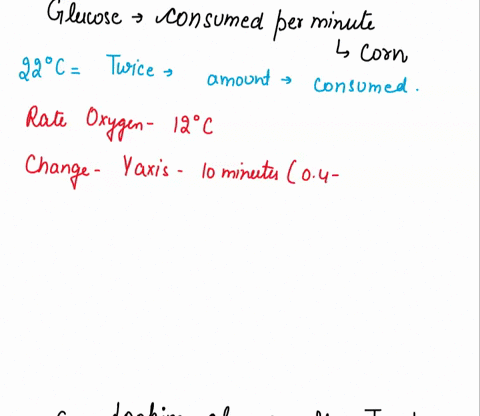 Glucose → consumed per minute
↳ Corn
22°C = Twice → amount → consumed.
Rate Oxygen - 12°C
Change - Yaxis - 10 minutes (0.4-